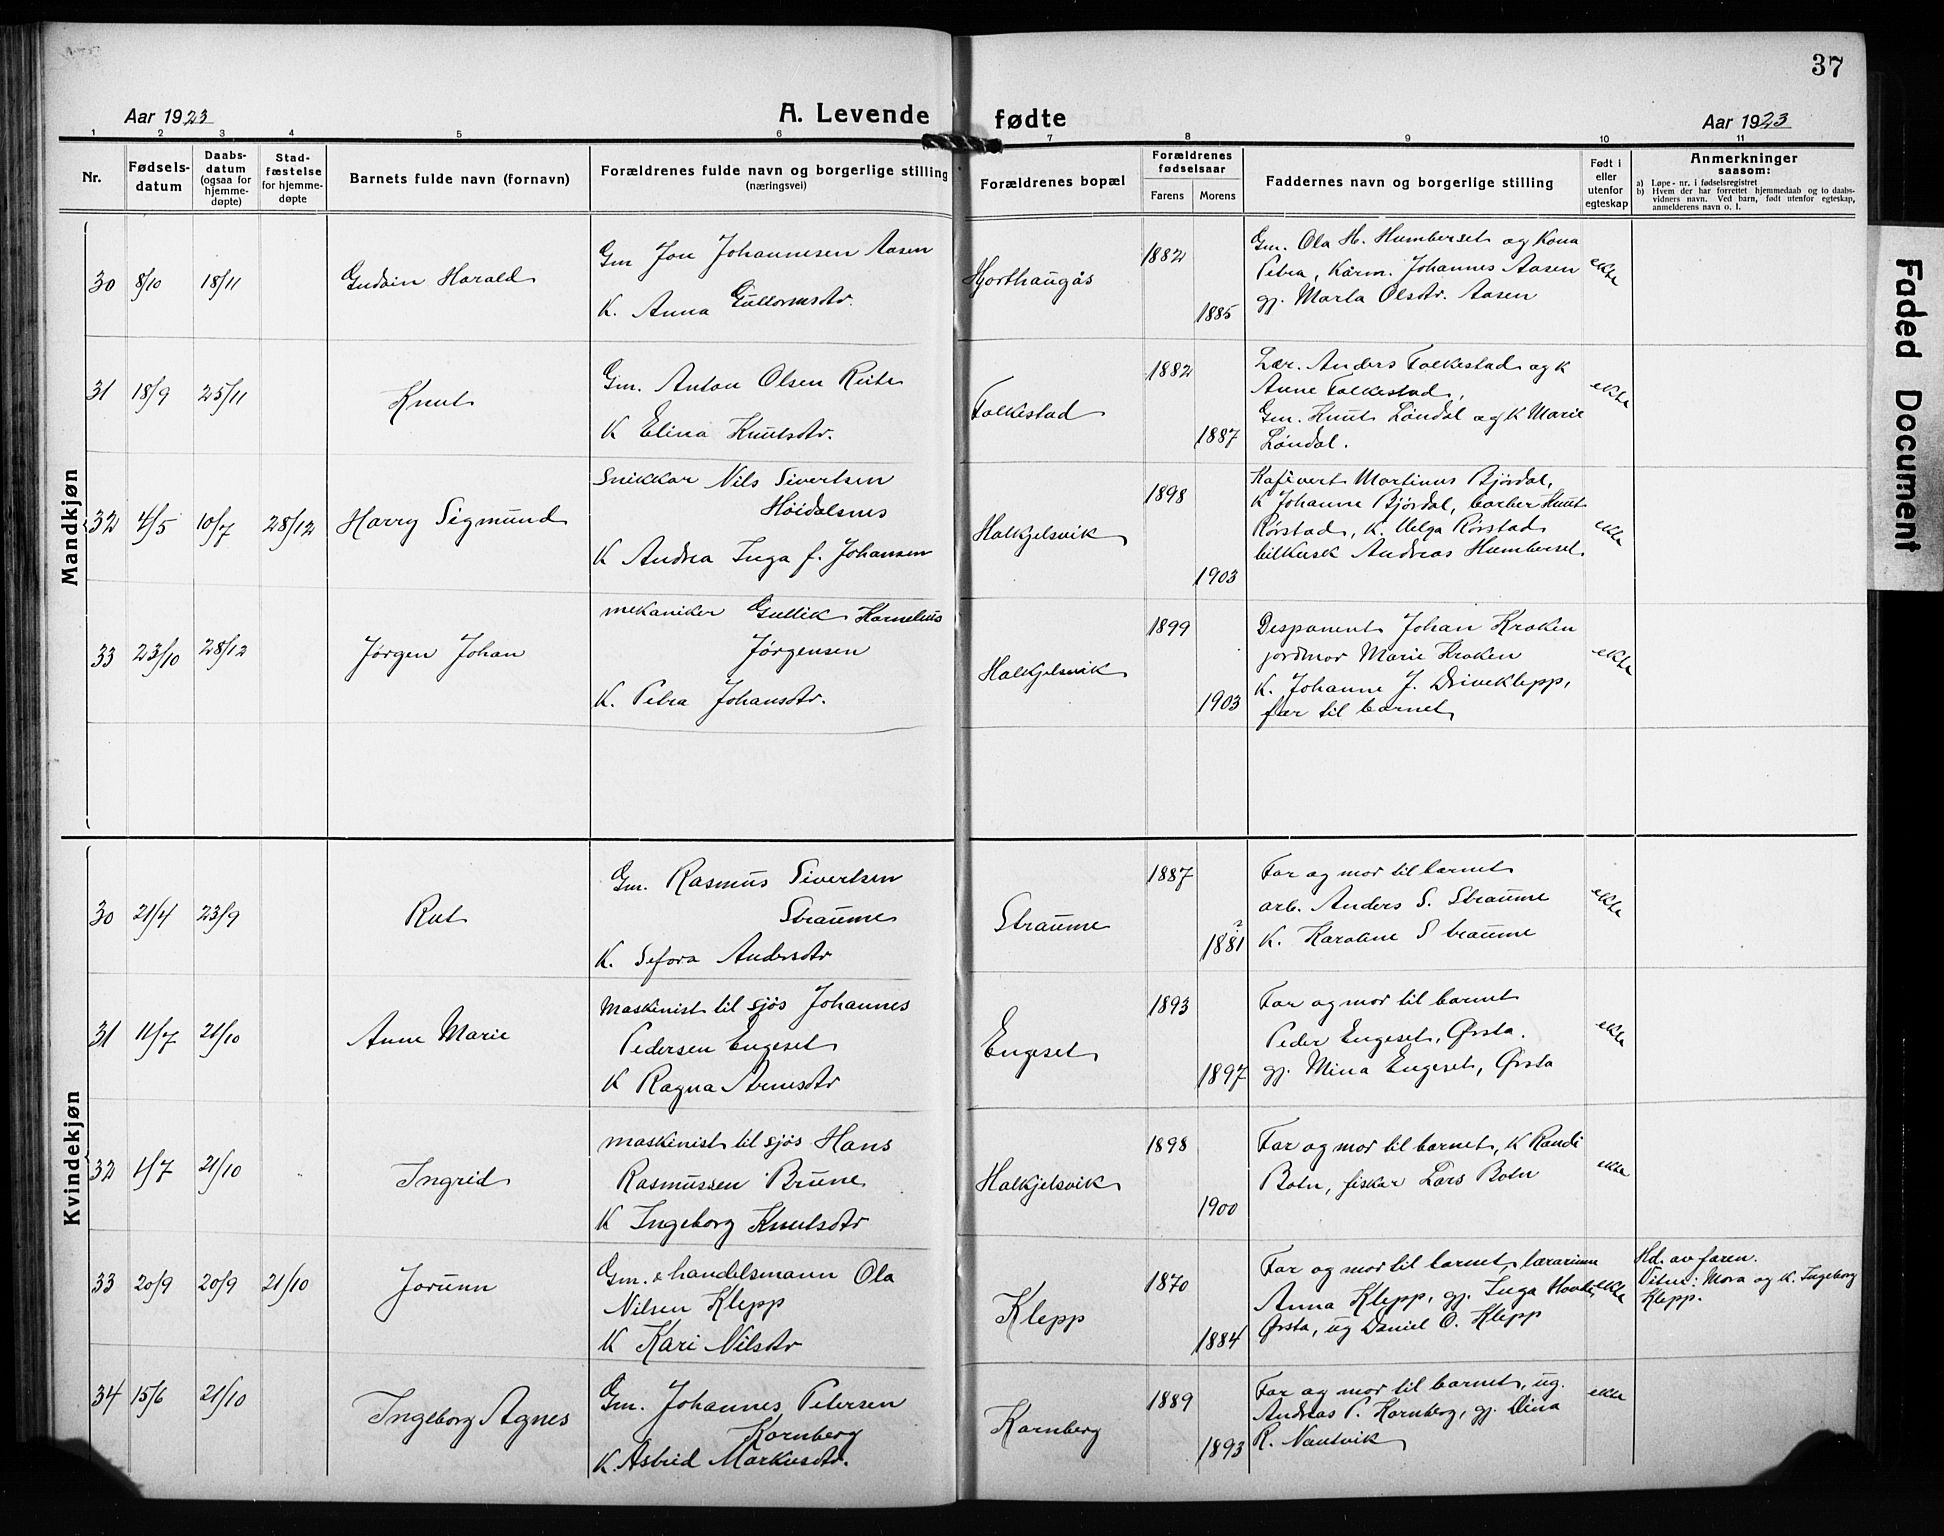 37
Aar 1923
A. Levende fødte
Aar 1923
1 2 3 4 5 6 7 8 9 10 11
Nr.
Fødsels-
datum
Daabs-
datum
(ogsaa for
hjemme-
døpte)
Stad-
fæstelse
for hjemme-
døpte
Barnets fulde navn (fornavn)
Forældrenes fulde navn og borgerlige stilling
(næringsvei)
Forældrenes bopæl
Forældrenes
fødselsaar
Farens Morens
Faddernes navn og borgerlige stilling
Født i
eller
utenfor
egteskap
Anmerkninger
saasom:
a) Løpe-nr. i fødselsregistret
b) Hvem der har forrettet hjemmedaab og to daabs-
vidners navn. Ved barn, født utenfor egteskap,
anmelderens navn o. l.
Mandkjøn
30 8/10 18/11
Harald
Gm Jon Johannesen Aasen
K. Anna Guttormsdtr.
Hjorthaugås
1882
1885
Gm. Ola H. Humberset og Kona
Petra, Kårm. Johannes Aasen
gj. Marta Olsdtr. Aasen
ekte
31 18/9 25/11
Knut
Gm. Anton Olsen Reite
K Elina Knutsdtr.
Folkestad
1882
1887
Lær. Anders Folkestad og K
Anne Folkestad,
Gm. Knut Løndal og K Marie
Løndal.
ekte
32 4/5 10/7 28/12
Harry Sigmund
Snikkar Nils Sivertsen
Høidalsnes
K Andrea Inga f. Johansen
Halkjelsvik
1898
1903
Kafévert Martinus Bjørdal,
K Johanne Bjørdal, barber Knut
Rørstad, K. Helga Rørstad
bilkusk Andreas Humberset
ekte
33 23/10 28/12
Jørgen Johan
mekaniker Gullik Kornelius
Jørgensen
K. Petra Johansdtr.
Halkjelsvik
1899
1903
Desponent Johan Kroken
jordmor Marie Kroken
K. Johanne J. Driveklepp,
far til barnet
ekte
Kvindekjøn
30 21/4 23/9
Rut
Gm. Rasmus Sivertsen
Straume
K. Sefora Andersdtr
Straume
1887
1881
Far og mor til barnet
arb. Anders S. Straume
K. Karoline Straume
ekte
31 11/7 21/10
Anne Marie
Maskinist til sjøs Johannes
Pedersen Engeset
K Ragna Arnesdtr
Engeset
1893
1897
Far og mor til barnet
Peder Engeset, Ørsta.
gj. Mina Engeset, Ørsta
ekte
32 1/7 21/10
Ingrid
maskinist til sjøs Hans
Rasmussen Brune
K Ingeborg Knutsdtr
Halkjelsvik
1898
1900
Far og mor til barnet, K Randi
Botn, fiskar Lars Botn
ekte
33 20/9 20/9 21/10
Jorunn
Gm. & handelsmann Ola
Nilsen Klepp
K Kari Nilsdtr
Klepp
1870
1884
Far og mor til barnet, lærarinne
Anna Klepp, gj. Inga Hovde,
Ørsta, ug Daniel O. Klepp
ekte
Hd. av faren.
Vitne: Mora og K. Ingeborg
Klepp.
34 15/6 21/10
Ingeborg Agnes
Gm. Johannes Petersen
Kornberg
K. Astrid Markusdtr.
Kornberg
1889
1893
Far og mor til barnet, ug.
Andreas P. Kornberg, gj. Dina
R. Nautvik
ekte
Faded Document